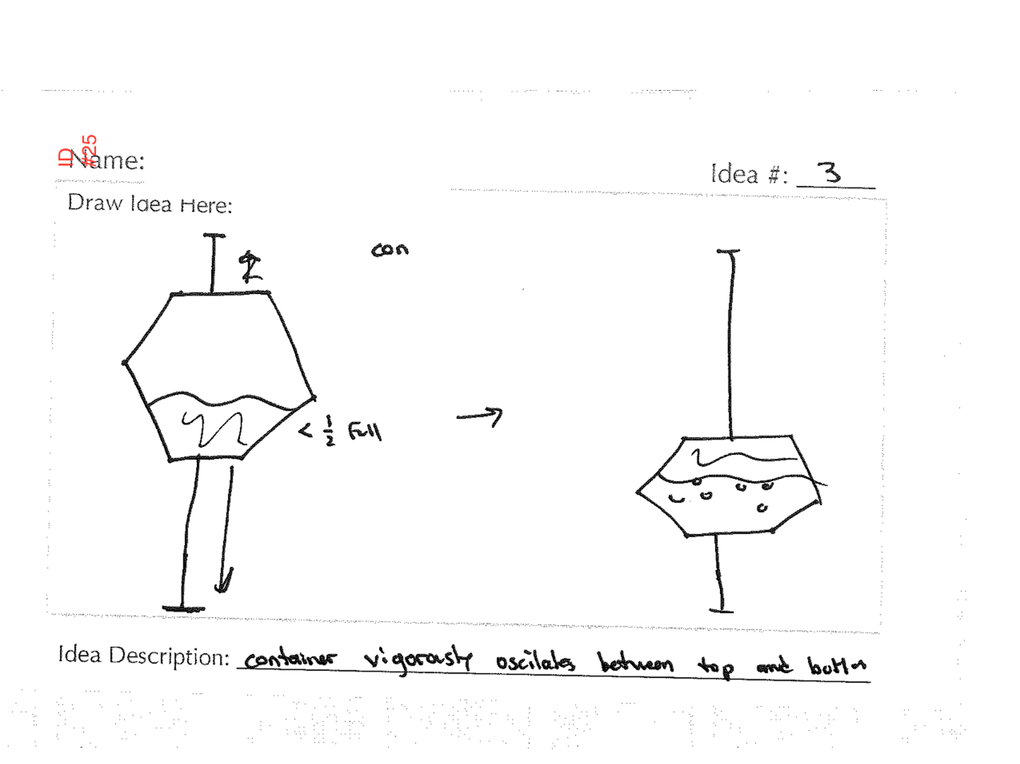 ID #25
Name:
Idea #: 3
Draw Idea Here:
con
< 1/2 Full
Idea Description: container vigorously oscilates between top and bottom